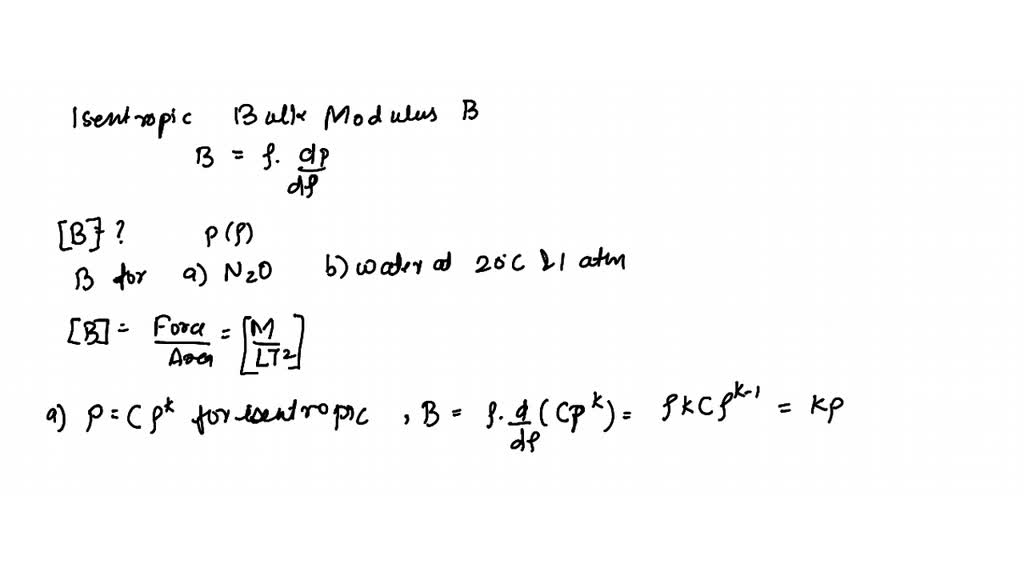 Isentropic Bulk Modulus B
B = ρ. dp/dρ
[B]? p(ρ)
B for a) N2O b) water at 20°C & 1 atm
[B] = Force/Area = [M/LT²]
a) p = Cρ^k for isentropic , B = ρ. d/dρ (Cρ^k) = ρkCρ^k-1 = kp